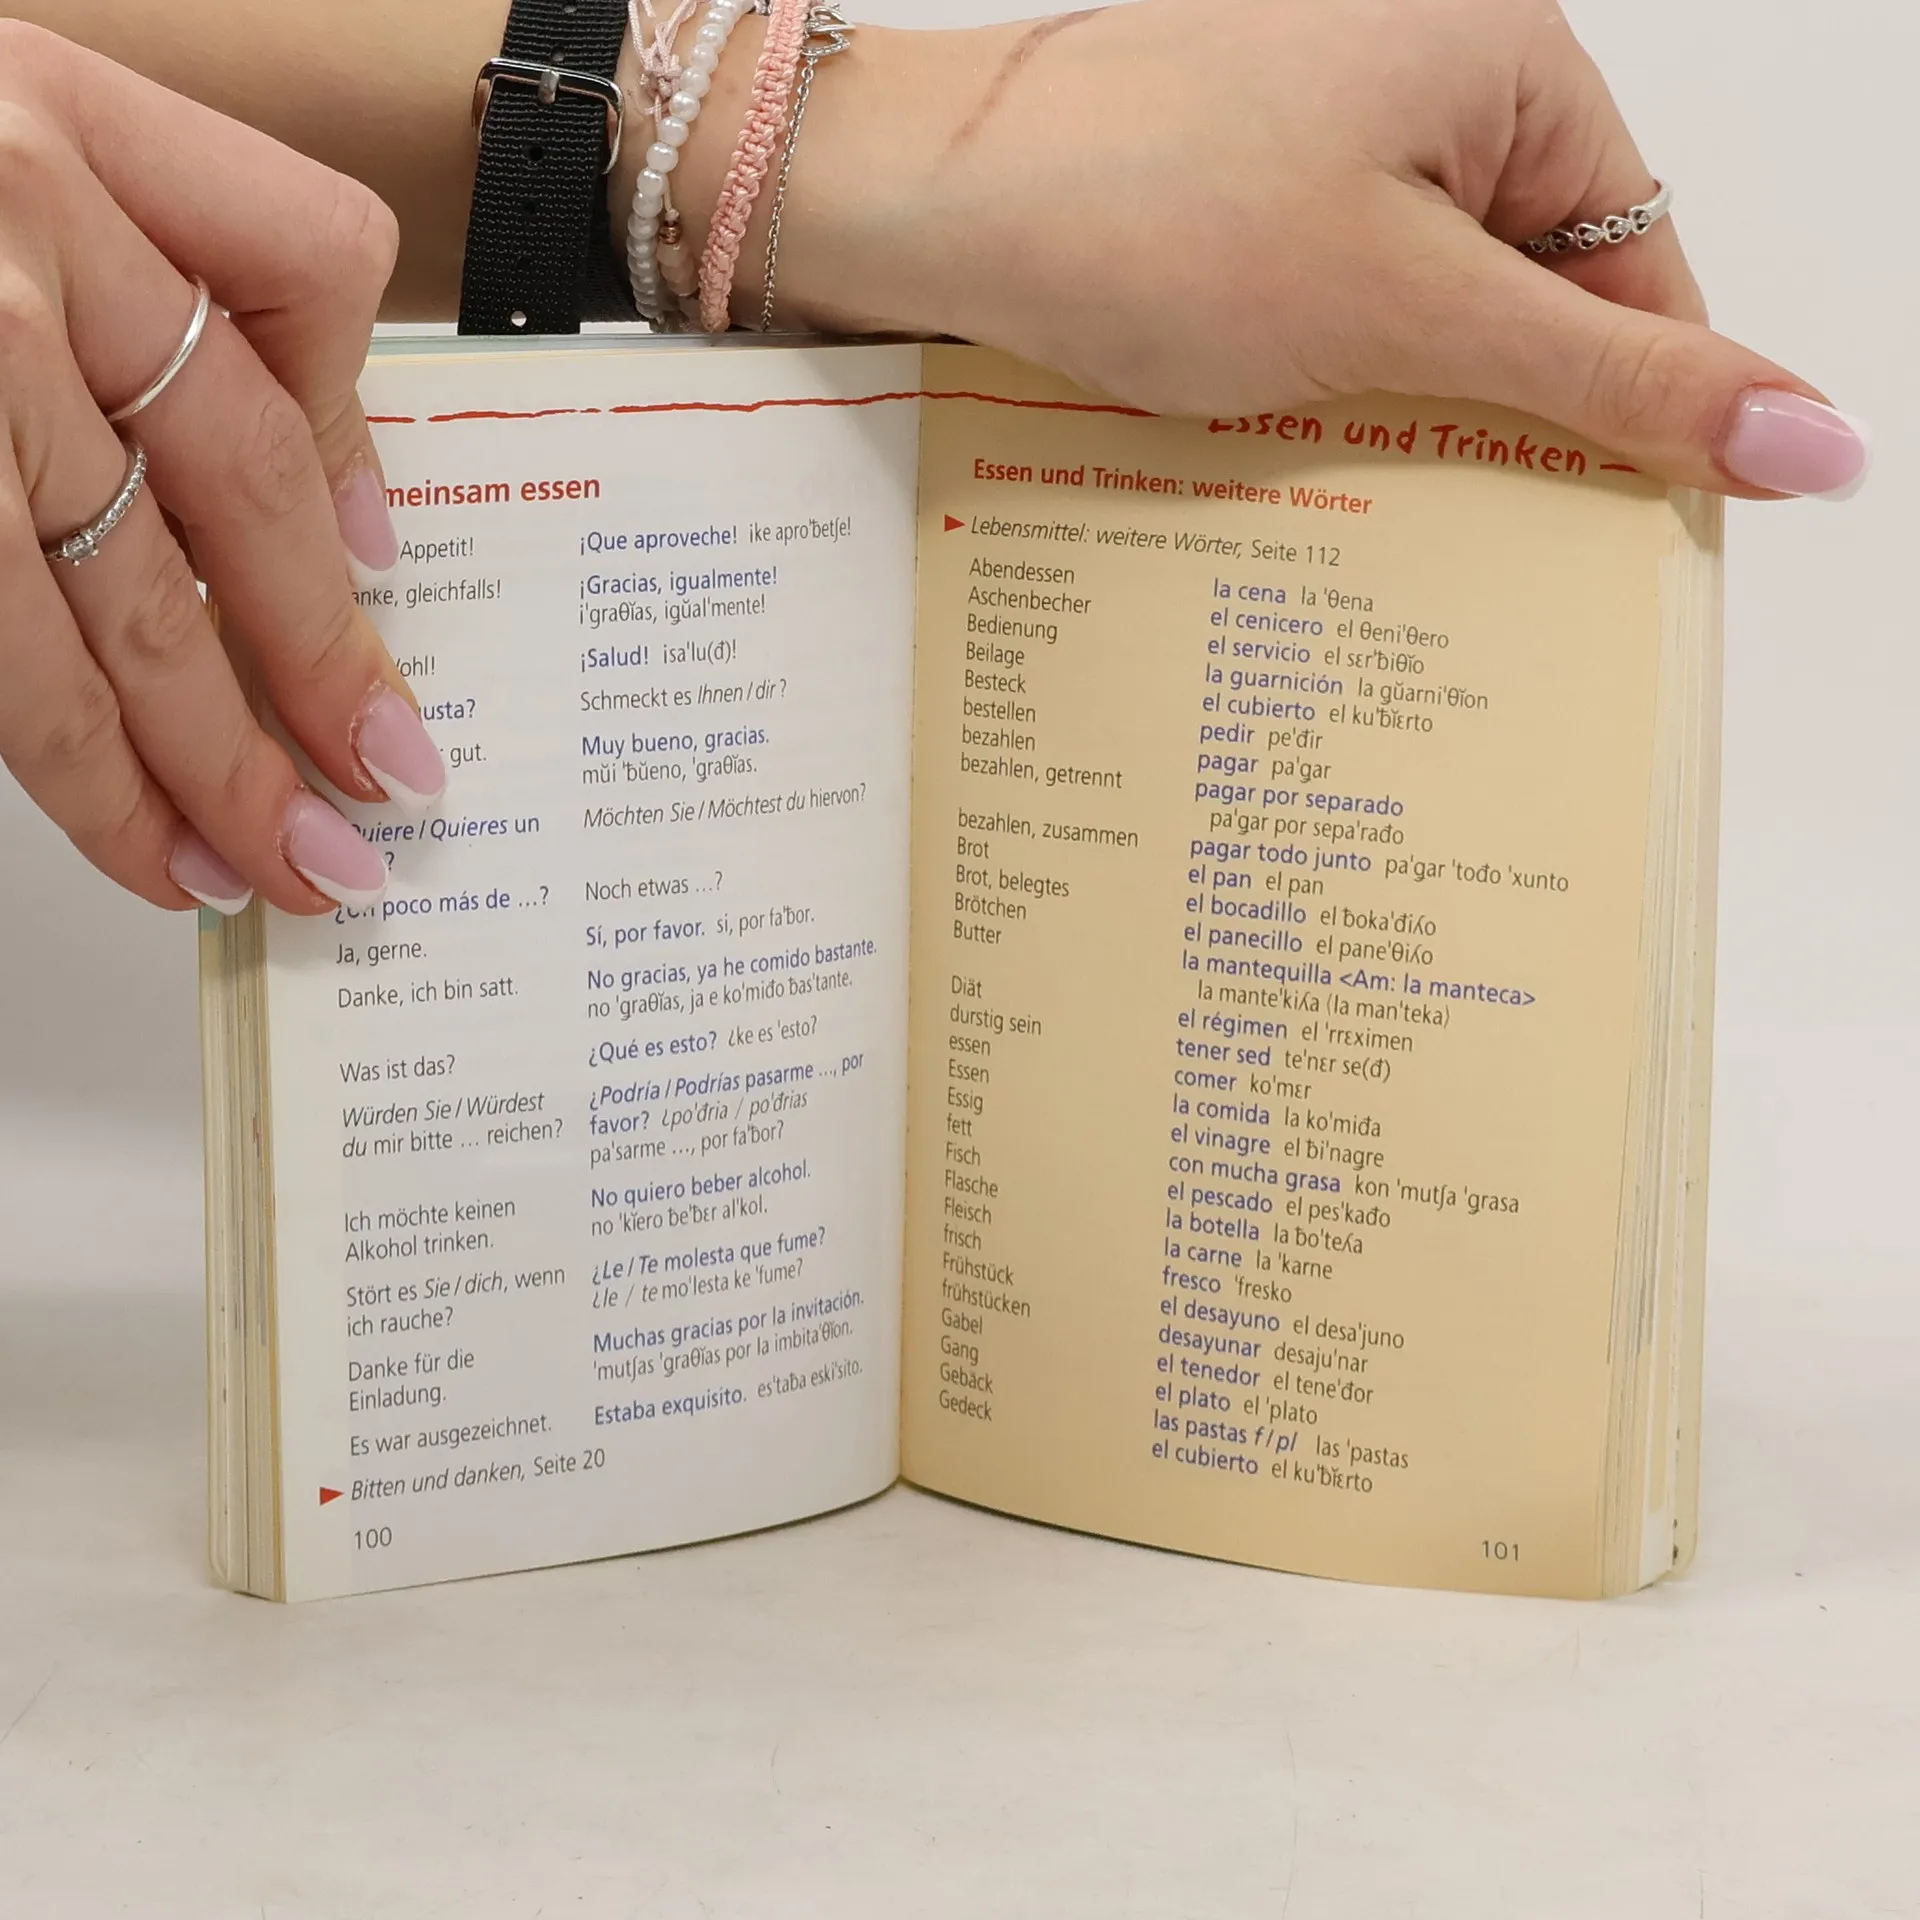 meinsam essen
Appetit! ¡Que aproveche! ike apro'ƀetʃe!
anke, gleichfalls! ¡Gracias, igualmente!
i'graθĭas, igŭal'mente!
ohl! ¡Salud! isa'lu(đ)!
usta? Schmeckt es Ihnen / dir?
gut. Muy bueno, gracias.
mŭi 'ƀŭeno, 'graθĭas.
uiere / Quieres un Möchten Sie / Möchtest du hiervon?
?
poco más de ...? Noch etwas ...?
Ja, gerne. Sí, por favor. si, por fa'ƀor.
Danke, ich bin satt. No gracias, ya he comido bastante.
no 'graθĭas, ja e ko'miđo ƀas'tante.
Was ist das? ¿Qué es esto? ¿ke es 'esto?
Würden Sie / Würdest ¿Podría / Podrías pasarme ..., por
du mir bitte ... reichen? favor? ¿po'đria / po'đrias
pa'sarme ..., por fa'ƀor?
Ich möchte keinen No quiero beber alcohol.
Alkohol trinken. no 'kĭero ƀe'ƀɛr al'kol.
Stört es Sie / dich, wenn ¿Le / Te molesta que fume?
ich rauche? ¿le / te mo'lesta ke 'fume?
Danke für die Muchas gracias por la invitación.
Einladung. 'mutʃas 'graθĭas por la imbita'θĭon.
Es war ausgezeichnet. Estaba exquisito. es'taƀa eski'sito.
► Bitten und danken, Seite 20
100
Essen und Trinken
Essen und Trinken: weitere Wörter
► Lebensmittel: weitere Wörter, Seite 112
Abendessen la cena la 'θena
Aschenbecher el cenicero el θeni'θero
Bedienung el servicio el sɛr'ƀiθĭo
Beilage la guarnición la gŭarni'θĭon
Besteck el cubierto el ku'ƀĭɛrto
bestellen pedir pe'đir
bezahlen pagar pa'gar
bezahlen, getrennt pagar por separado
pa'gar por sepa'rađo
bezahlen, zusammen pagar todo junto pa'gar 'tođo 'xunto
Brot el pan el pan
Brot, belegtes el bocadillo el ƀoka'điʎo
Brötchen el panecillo el pane'θiʎo
Butter la mantequilla <Am: la manteca>
la mante'kiʎa ⟨la man'teka⟩
Diät el régimen el 'rrɛximen
durstig sein tener sed te'nɛr se(đ)
essen comer ko'mɛr
Essen la comida la ko'miđa
Essig el vinagre el ƀi'nagre
fett con mucha grasa kon 'mutʃa 'grasa
Fisch el pescado el pes'kađo
Flasche la botella la ƀo'teʎa
Fleisch la carne la 'karne
frisch fresco 'fresko
Frühstück el desayuno el desa'juno
frühstücken desayunar desaju'nar
Gabel el tenedor el tene'đor
Gang el plato el 'plato
Gebäck las pastas f / pl las 'pastas
Gedeck el cubierto el ku'ƀĭɛrto
101